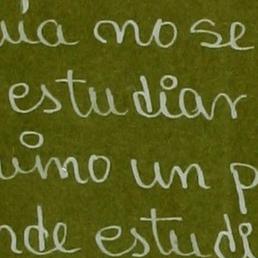 uía no se
estudiar
uimo un p
nde estudi